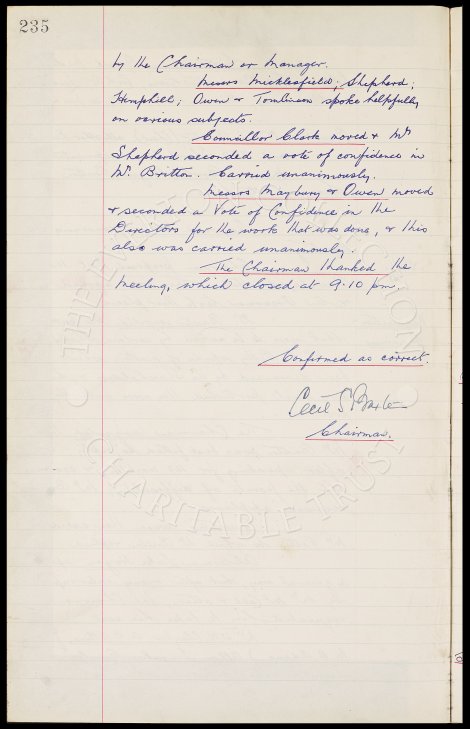 235
by the Chairman or Manager.
Messrs Micklesfield; Shepherd;
Hemphill; Owen & Tomlinson spoke helpfully
on various subjects.
Councillor Clark moved & Mr
Shepherd seconded a vote of confidence in
Mr. Britton. Carried unanimously.
Messrs Maybury & Owen moved
& seconded a Vote of Confidence in the
Directors for the work that was done, & this
also was carried unanimously.
The Chairman thanked the
meeting, which closed at 9.10 pm.
Confirmed as correct.
Cecil S Baxter
Chairman.
CHARITABLE TRUST